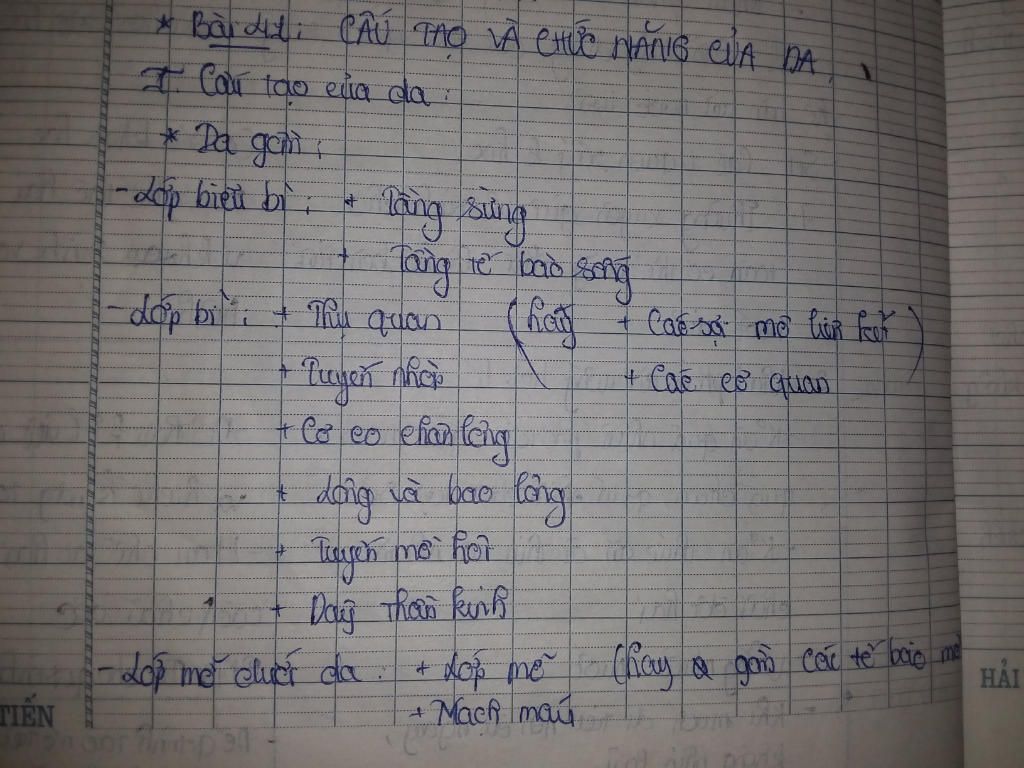 * Bài 41: CẤU TẠO VÀ CHỨC NĂNG CỦA DA.
I. Cấu tạo của da:
* Da gồm:
- Lớp biểu bì: + Tầng sừng
+ Tầng tế bào sống
- Lớp bì: + Thụ quan (hay + Các sợi mô liên kết)
+ Tuyến nhờn + Các cơ quan
+ Cơ co chân lông
+ Lông và bao lông
+ Tuyến mồ hôi
+ Dây thần kinh
- Lớp mỡ dưới da: + Lớp mỡ (hay gồm các tế bào mỡ
+ Mạch máu
TIẾN
HẢI